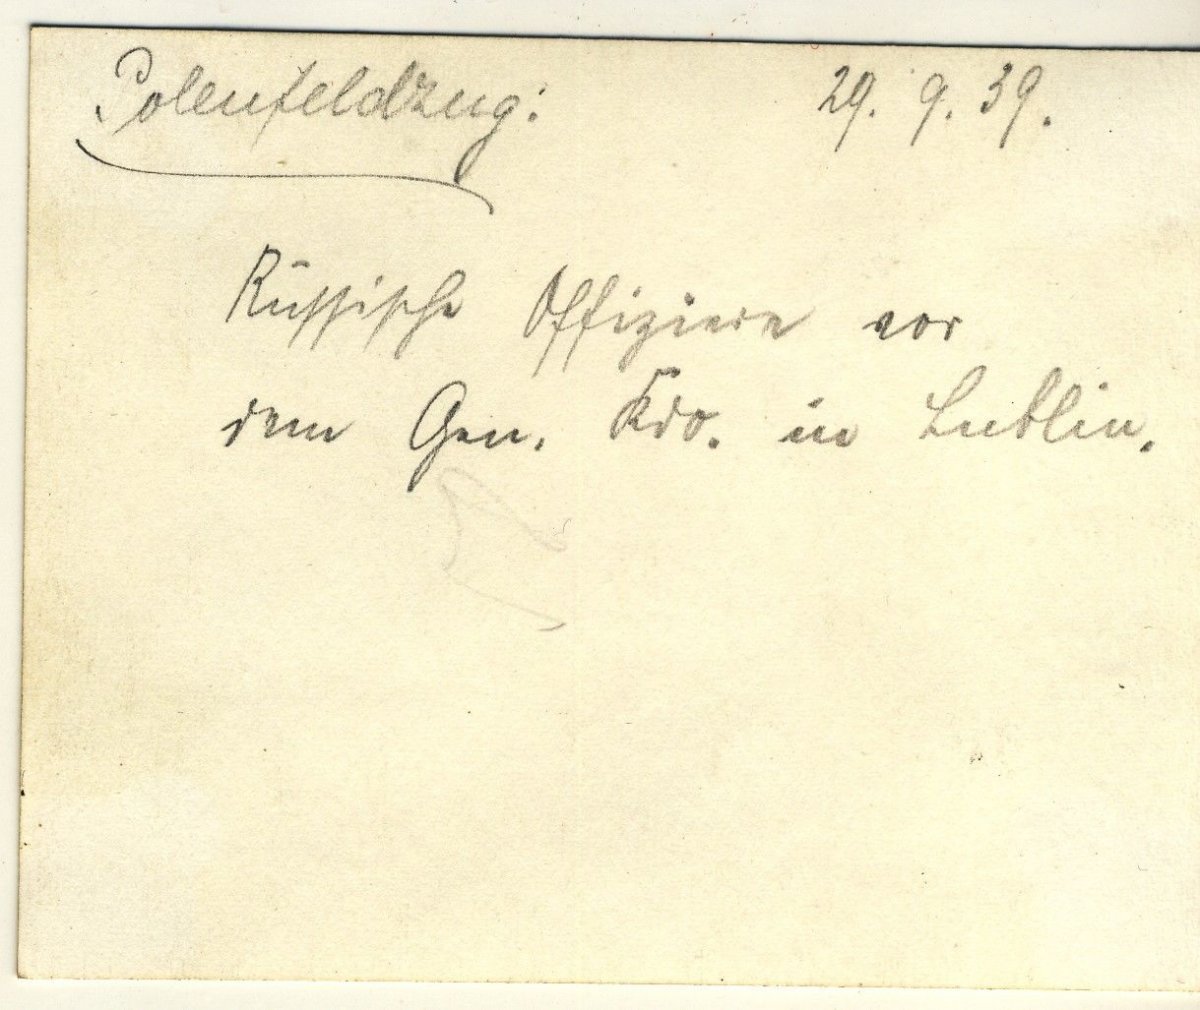 Polenfeldzug: 29. 9. 39.
Russische Offiziere vor
dem Gen. Kdo. in Lublin.